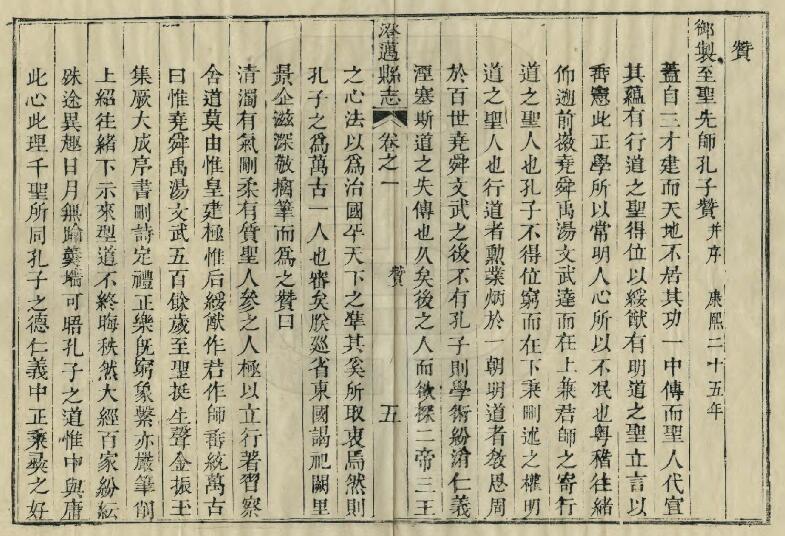 贊
御製至聖先師孔子贊 并序 康熙二十五年
蓋自三才建而天地不居其功一中傳而聖人代宣
其蘊有行道之聖得位以綏猷有明道之聖立言以
垂憲此正學所以常明人心所以不泯也粵稽往緒
仰遡前徽堯舜禹湯文武達而在上兼君師之寄行
道之聖人也孔子不得位窮而在下秉刪述之權明
道之聖人也行道者勲業炳於一朝明道者敎思周
於百世堯舜文武之後不有孔子則學術紛淆仁義
湮塞斯道之失傳也久矣後之人而欲探二帝三王
澄邁縣志 卷之一 贊 五
之心法以爲治國平天下之凖其奚所取衷焉然則
孔子之爲萬古一人也審矣朕廵省東國謁祀闕里
景企滋深敬摛筆而爲之贊曰
清濁有氣剛柔有質聖人參之人極以立行著習察
舍道莫由惟皇建極惟后綏猷作君作師垂統萬古
曰惟堯舜禹湯文武五百餘歲至聖挺生聲金振玉
集厥大成序書刪詩定禮正樂旣窮象繫亦嚴筆削
上紹往緒下示來型道不終晦秩然大經百家紛紜
殊途異趣日月無踰羹墻可晤孔子之道惟中與庸
此心此理千聖所同孔子之德仁義中正秉彝之好